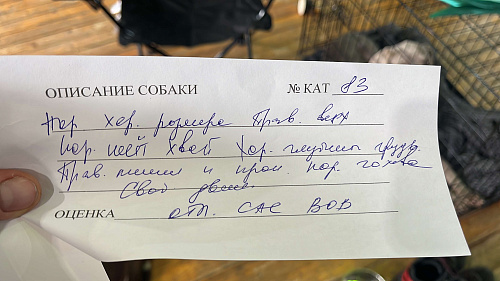 ОПИСАНИЕ СОБАКИ № КАТ 83
Хор. размера Прав. верх
Хор. шея Хвост Хор. глубина груди
Прав. линии и проп. Хор. голова
Своб движ.
ОЦЕНКА отл. CAC BOB